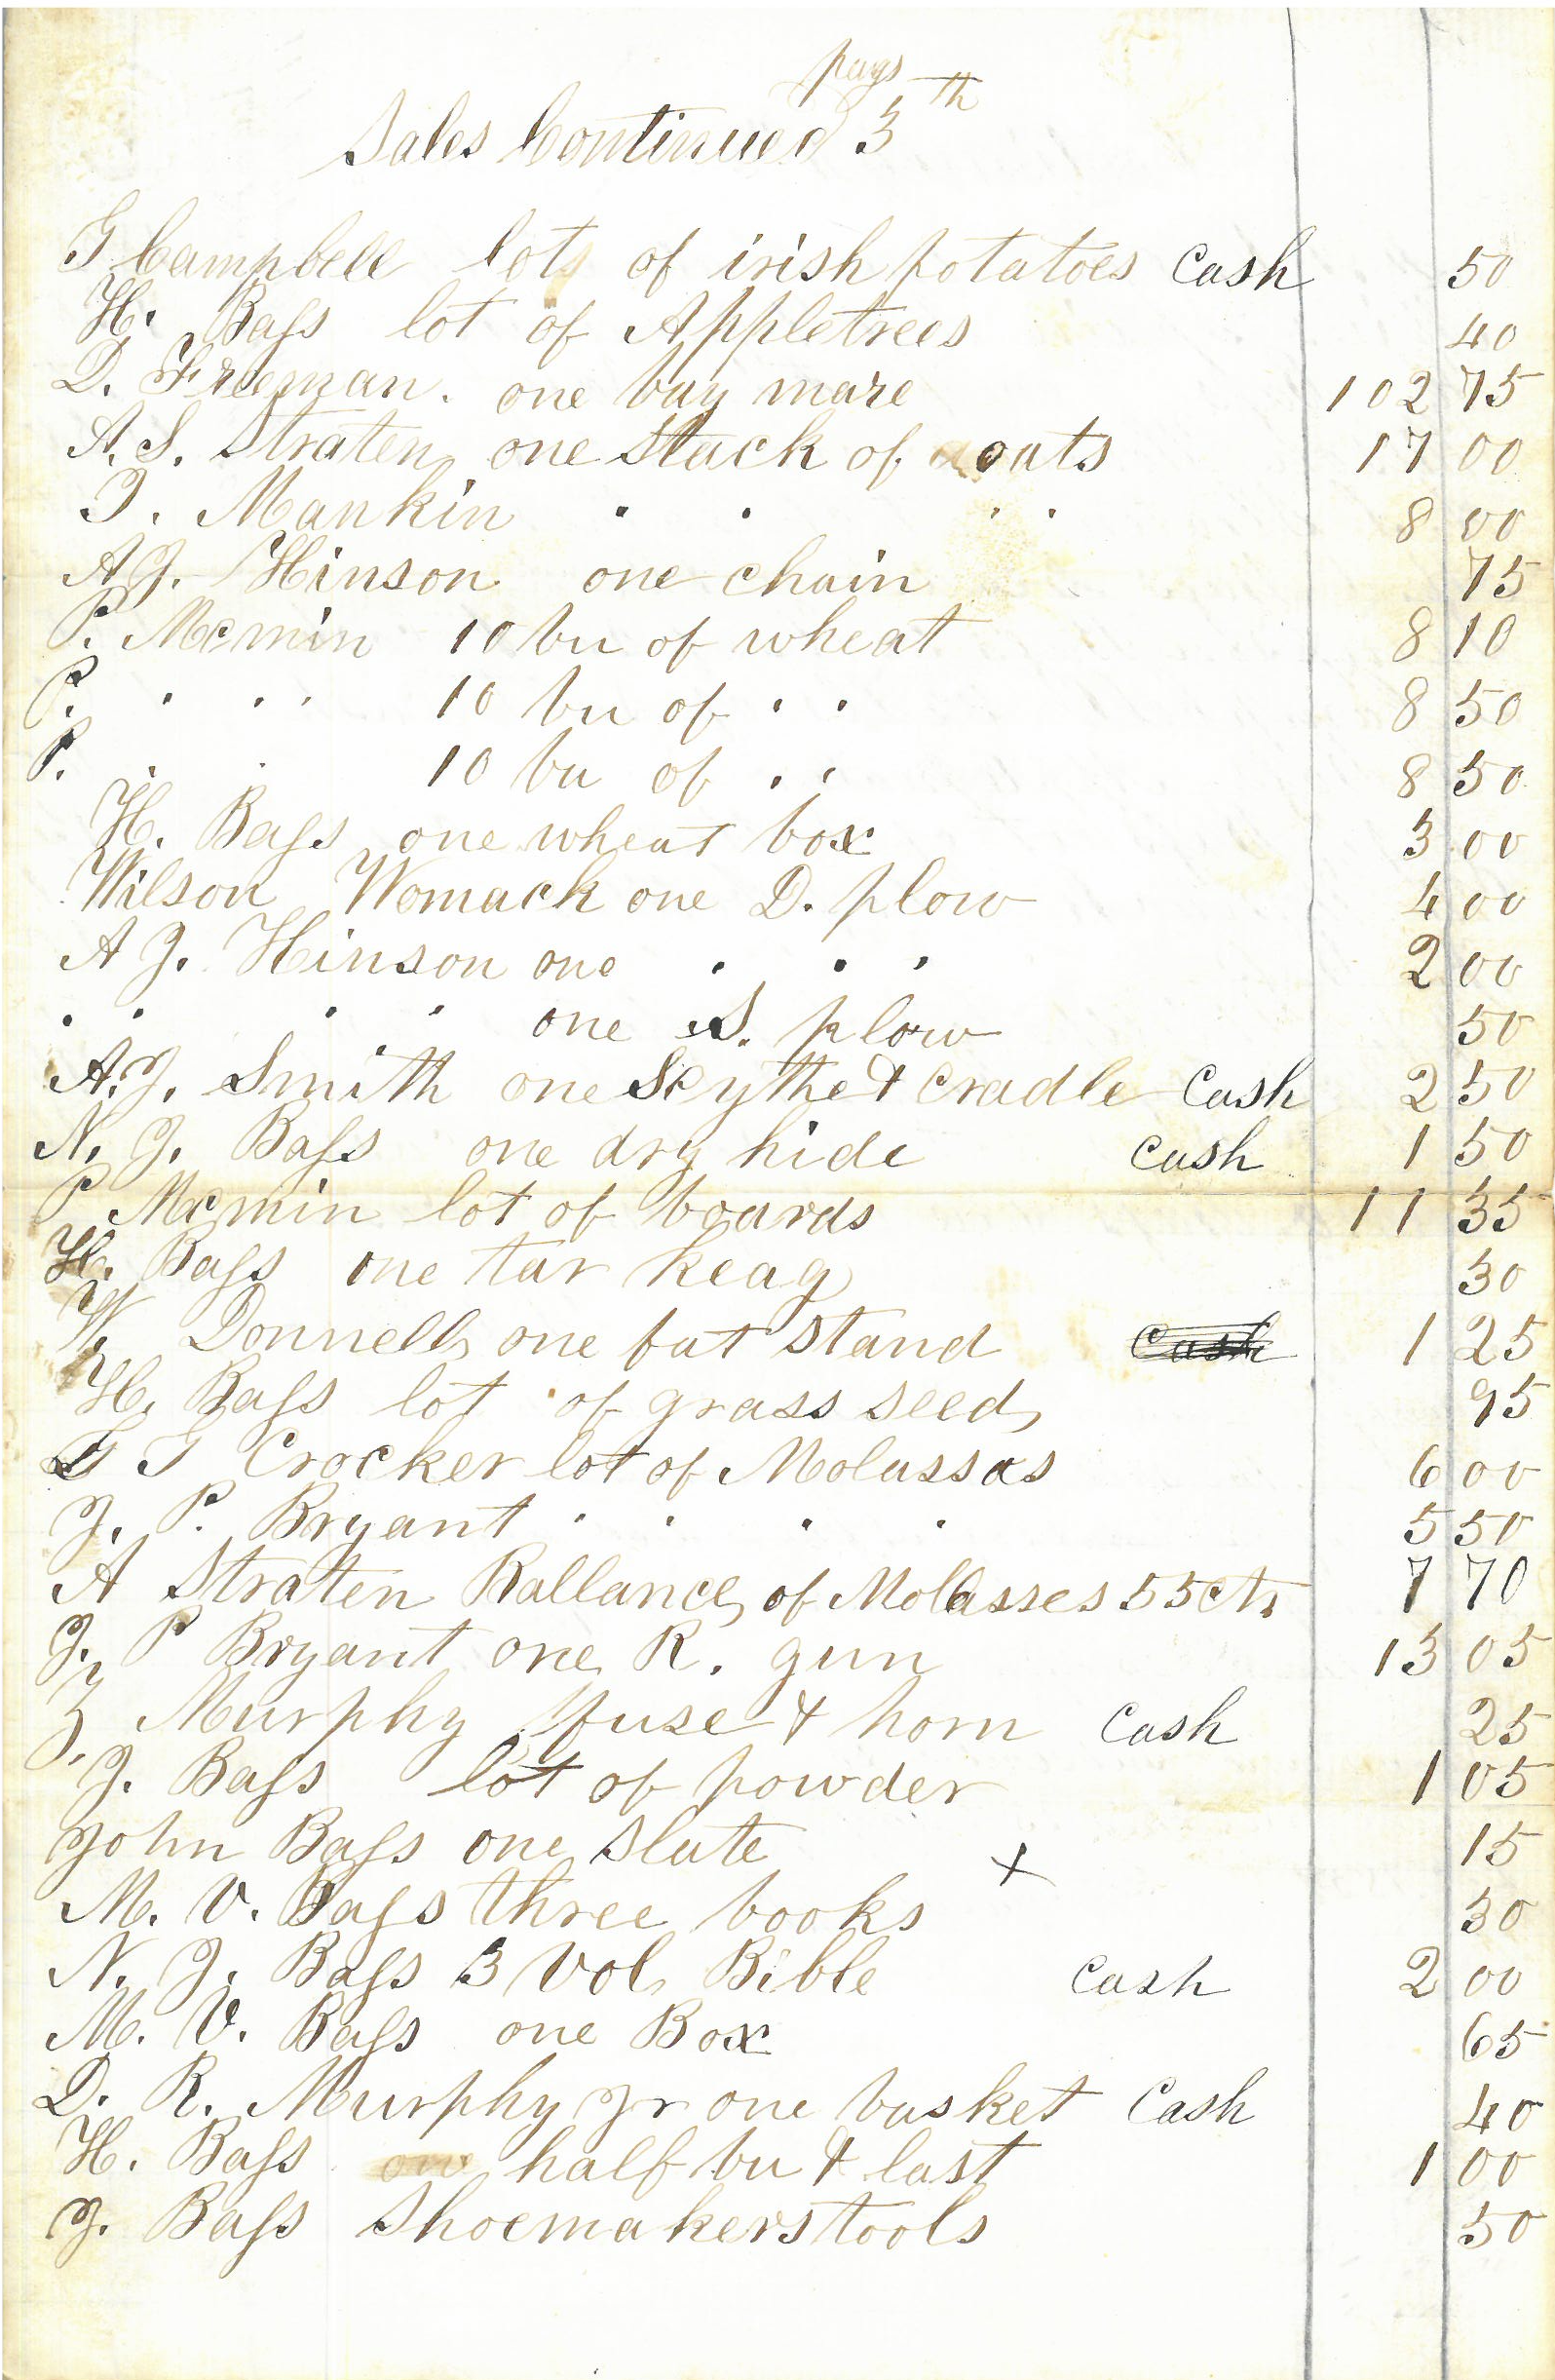 page
Sales Continued 3th
G Campbell lots of irish potatoes Cash 50
H. Bass lot of Appletrees 40
D. Freeman. one bay mare 102 75
A. S. Straten one Stack of oats 17 00
J. Mankin " " " " 8 00
A J. Hinson one chain 75
P. Mcmin 10 bu of wheat 8 10
P. " " " 10 bu of " " 8 50
P. " " 10 bu of " " 8 50
H. Bass one wheat box 3 00
Wilson Womack one D. plow 4 00
A J. Hinson one " " " 2 00
" " " " one S. plow 50
A. J. Smith one Scythe & Cradle Cash 2 50
N. J. Bass one dry hide Cash 1 50
P Mcmin lot of boards 11 35
H. Bass one tar keag 30
W. Donnell one fat stand Cash 1 25
H. Bass lot of grass seed 95
T Crocker lot of Molassas 6 00
J. P. Bryant " " " " 5 50
A Straten Ballance of Molasses 55 cts 7 70
J. P Bryant one R. gun 13 05
Z. Murphy fuse & horn Cash 25
J. Bass lot of powder 1 05
John Bass one slate 15
M. V. Bass three books x 30
N. J. Bass 3 Vol Bible Cash 2 00
M. V. Bass one Box 65
D. R. Murphy Jr one basket Cash 40
H. Bass half bu & last 1 00
J. Bass Shoemakers tools 50